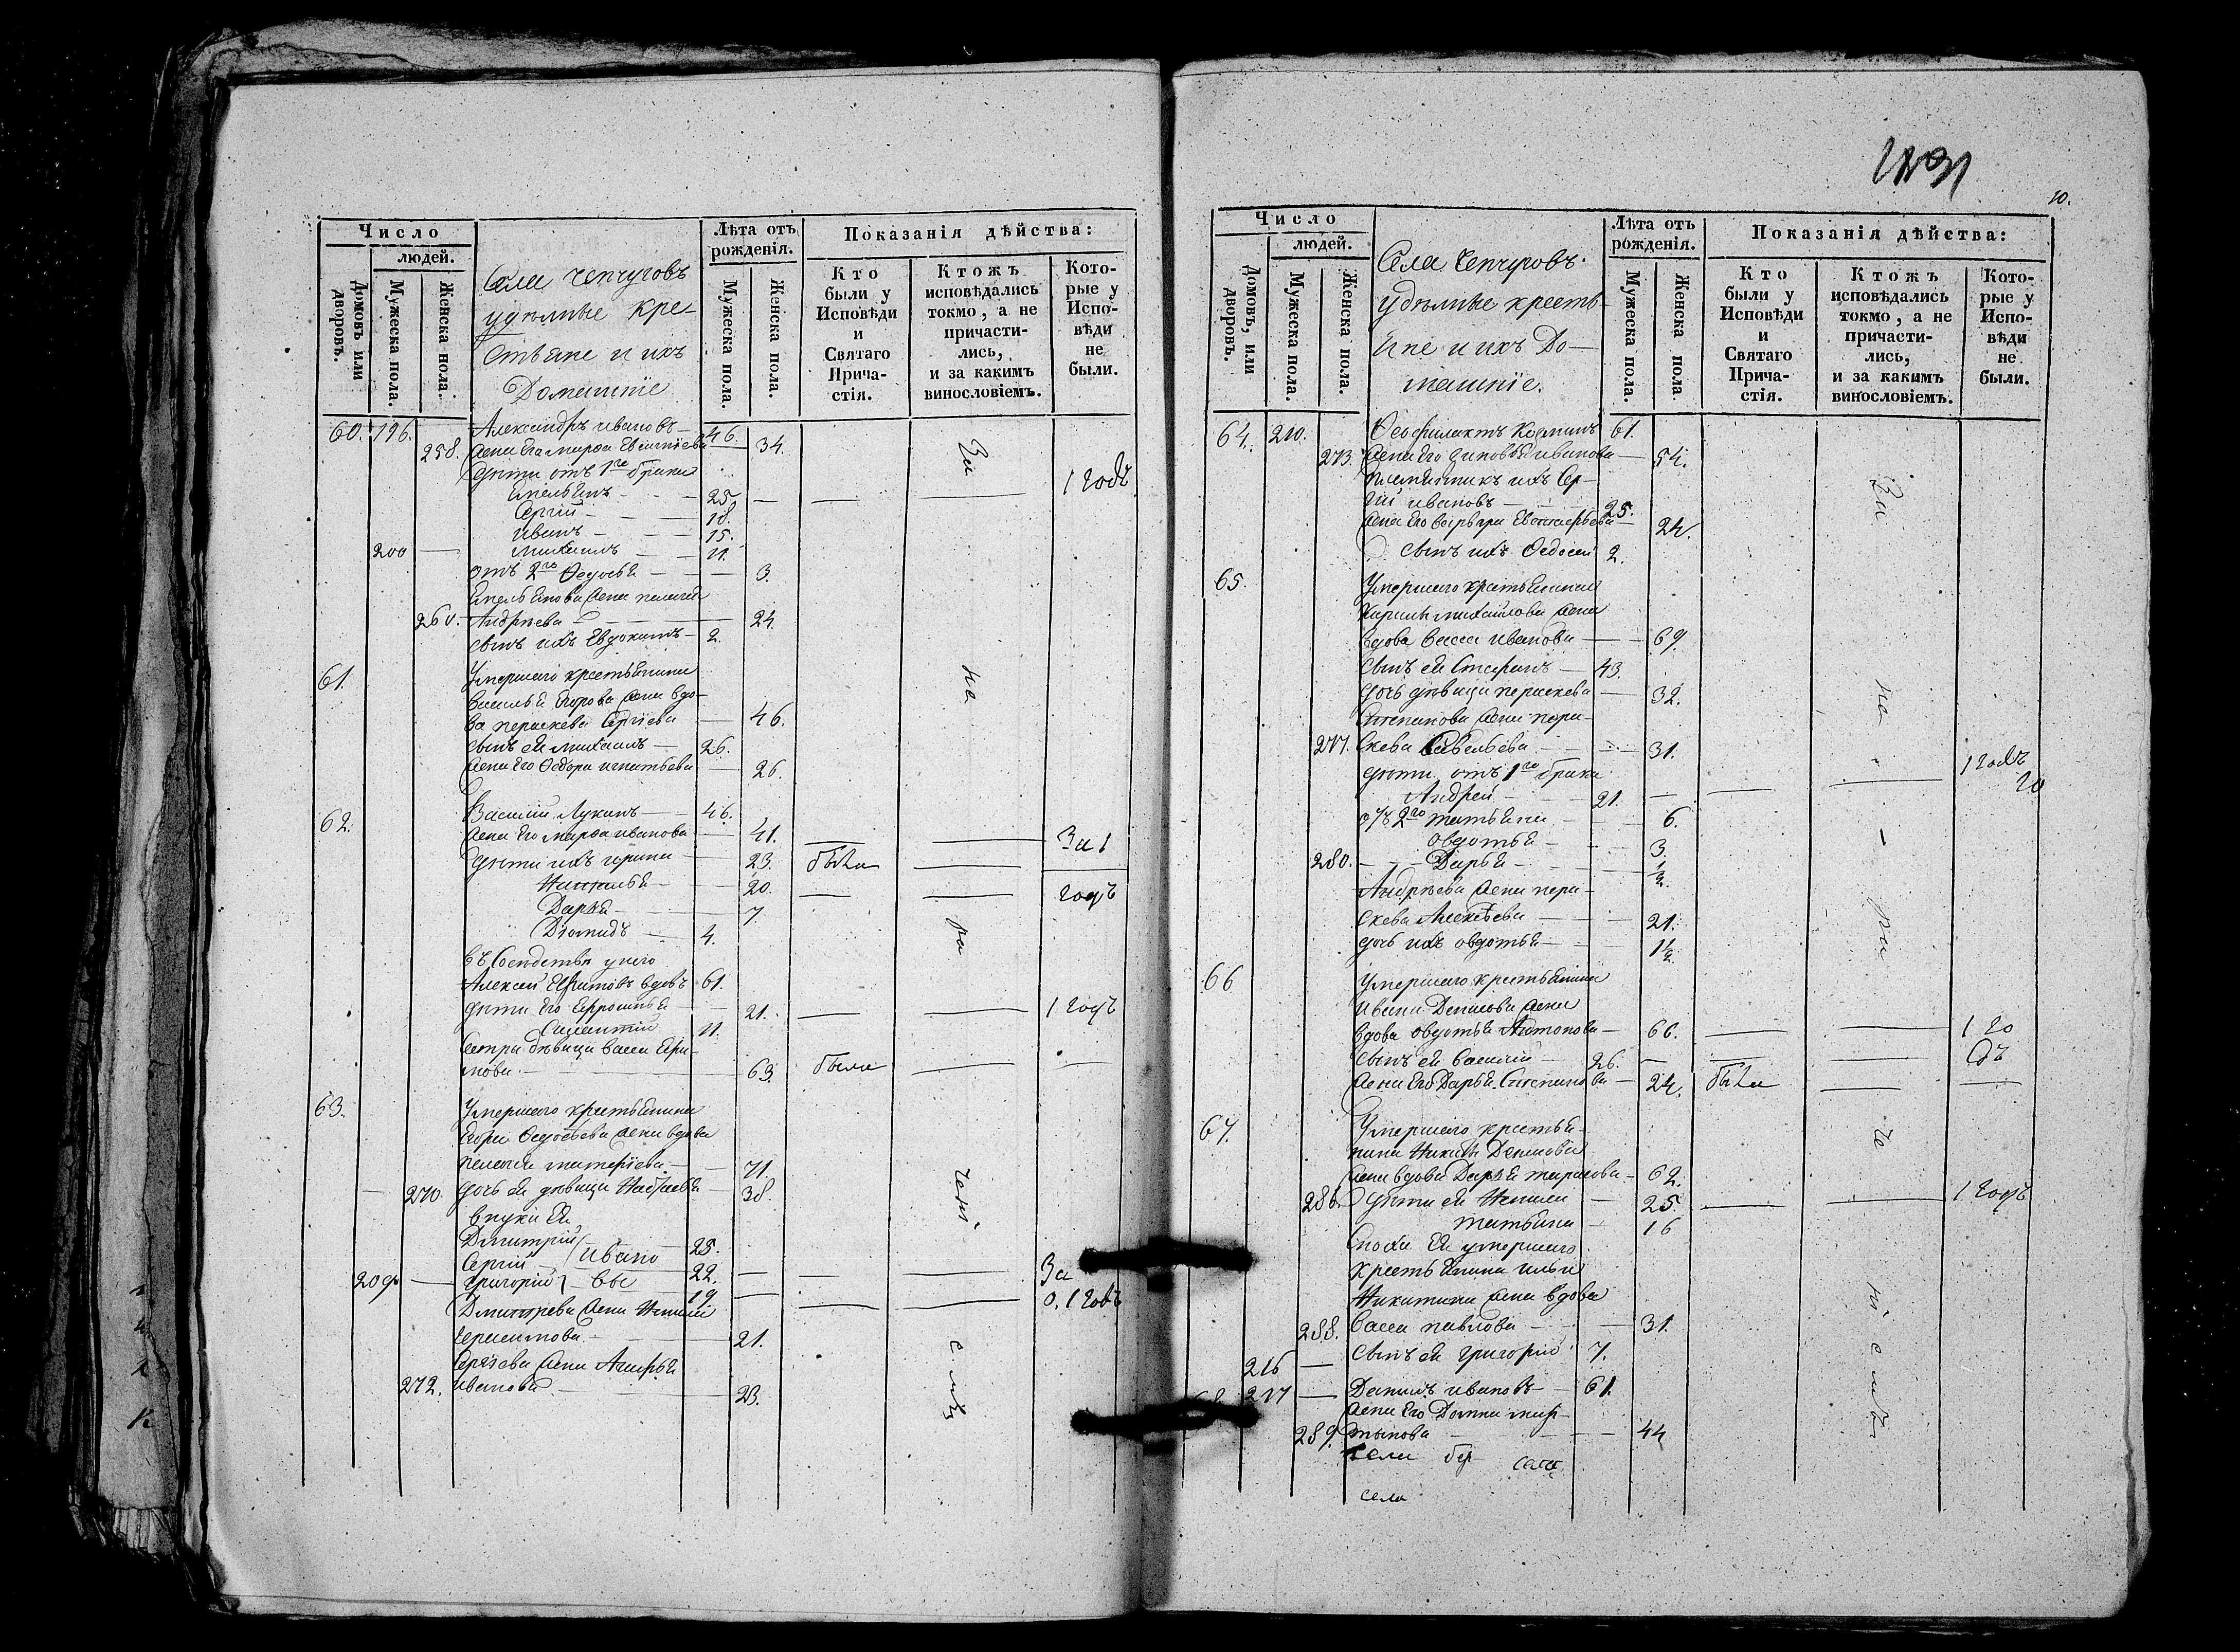 Число
людей.
Домовъ или дворовъ.
Мужеска пола.
Женска пола.
Села Чепчуговъ
удѣлные кре-
стьяне и ихъ
Домашніе
Лѣта отъ рожденія.
Мужеска пола.
Женска пола.
Показанія дѣйства:
Кто были у Исповѣди и Святаго Прича-стія.
Ктожъ исповѣдались токмо, а не причасти-лись, и за какимъ винословіемъ.
Кото-рые у Испо-вѣди не были.
60. 196. Александръ Ивановъ 46.
258. жена его Марфа 34.
дѣти отъ 1го брака
Емельянъ 25 1 годъ
Сергій 18.
Иванъ 15.
200 Михаилъ 11.
отъ 2го Федосья 3.
Емельянова жена Пелагея
260. Андрѣева 24.
сынъ ихъ Евдокимъ 2.
61. Умершаго крестьянина
Василья Егорова жена вдо-
ва Параскева Сергіева 46.
сынъ ея Михаилъ 26.
жена его Федора Игнатьева 26.
62. Василій Лукинъ 46.
жена его Марфа Иванова 41. За 1
дѣти ихъ Ирина 23. была
Наталья 20. годъ
Дарья 7
Діомидъ 4.
въ сосѣдствѣ у него
Алексей Ефимовъ вдовъ 61.
дѣти его Ефросинья 21. 1 годъ
11.
сестра дѣвица Васса Ефи-
мова 63. была
63. Умершаго крестьянина
Егора Федосѣева жена вдова
Пелагея 71.
270. дочь ея дѣвица Настасья 38.
внуки ея
Дмитрій 25.
Сергій Ивано 22.
209 Григорій вы 19 За
Дмитрева жена 0. 1 годъ
Герасимова 21.
Сергіева жена
272. Иванова 23.
10.
Число
людей.
Домовъ, или дворовъ.
Мужеска пола.
Женска пола.
Села Чепчуговъ
удѣлные кресть-
яне и ихъ До-
машніе.
Лѣта отъ рожденія.
Мужеска пола.
Женска пола.
Показанія дѣйства:
Кто были у Исповѣди и Святаго Прича-стія.
Ктожъ исповѣдались токмо, а не причасти-лись, и за какимъ винословіемъ.
Кото-рые у Испо-вѣди не были.
64. 210. Феофилактъ Козминъ 61.
273. жена его Зиновья Иванова 54.
племянникъ ихъ Сер-
гій Ивановъ 25.
жена его Варвара 24.
сынъ ихъ Федосей 2.
65. Умершаго крестьянина
Кирилы Михайлова жена
вдова Васса Иванова 69.
сынъ ея Стефанъ 43.
дочь дѣвица Параскева 32.
Степанова жена Пара-
277. скева Савельева 31.
дѣти отъ 1го брака 1 годъ
Андрей 21.
отъ 2го Татьяна 6.
Овдотья 3.
280. Дарья 1/2
Андрѣева жена Пара-
скева Алексѣева 21.
дочь ихъ Овдотья 1 1/2
66 Умершаго крестьянина
Ивана Денисова жена
вдова Овдотья Антонова 66. 1 го
сынъ ея Василій 26. дъ
жена его Дарья Степанова 24. была
67. Умершаго крестья-
нина Никиты Денисова
жена вдова Дарья Тарасова 62.
286. дѣти ея 25. 1 годъ
Татьяна 16
сноха ея умершаго
крестьянина Ильи
Никитина жена вдова
288. Васса Павлова 31.
216 сынъ ея Григорій 7.
68. 217 Данилъ Ивановъ 61.
жена его Домна Мар-
289. тынова 44
села